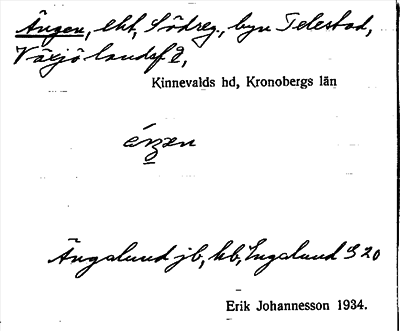 Ängen, lht, Södreg., byn Telestad,
Växjö landsf 2,
Kinnevalds hd, Kronobergs län
éŋen
Ängalund jb, hb, Engalund S 20
Erik Johannesson 1934.